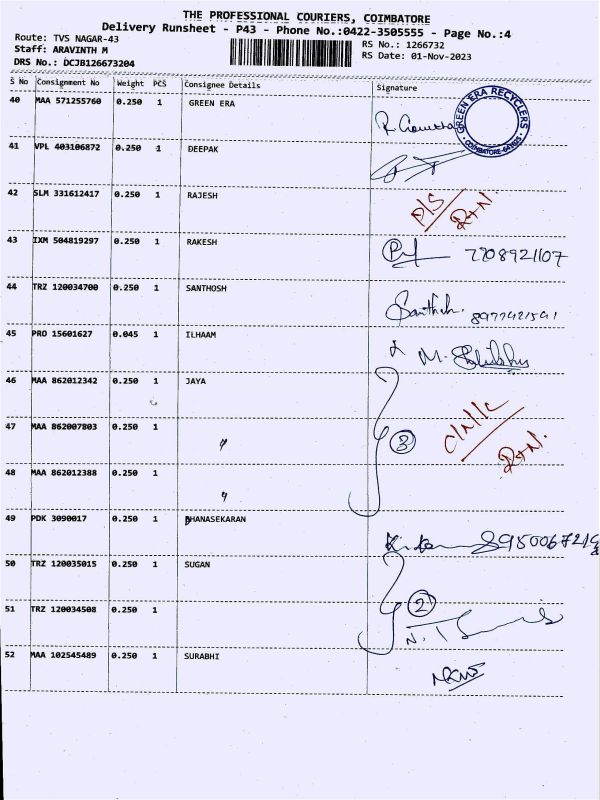 THE PROFESSIONAL COURIERS, COIMBATORE
Delivery Runsheet - P43 - Phone No.:0422-3505555 - Page No.:4
Route: TVS NAGAR-43
RS No.: 1266732
Staff: ARAVINTH M
RS Date: 01-Nov-2023
DRS No.: DCJB126673204
S No Consignment No Weight PCS Consignee Details Signature
40 MAA 571255760 0.250 1 GREEN ERA
GREEN ERA RECYCLERS
COIMBATORE
41 VPL 403106872 0.250 1 DEEPAK
42 SLM 331612417 0.250 1 RAJESH P/S
R+N
43 IXM 504819297 0.250 1 RAKESH 7708921107
44 TRZ 120034700 0.250 1 SANTHOSH
45 PRO 15601627 0.045 1 ILHAAM M.
46 MAA 862012342 0.250 1 JAYA
47 MAA 862007803 0.250 1 " 3
R+N.
48 MAA 862012388 0.250 1 "
49 PDK 3090017 0.250 1 DHANASEKARAN
50 TRZ 120035015 0.250 1 SUGAN
51 TRZ 120034508 0.250 1 2
52 MAA 102545489 0.250 1 SURABHI